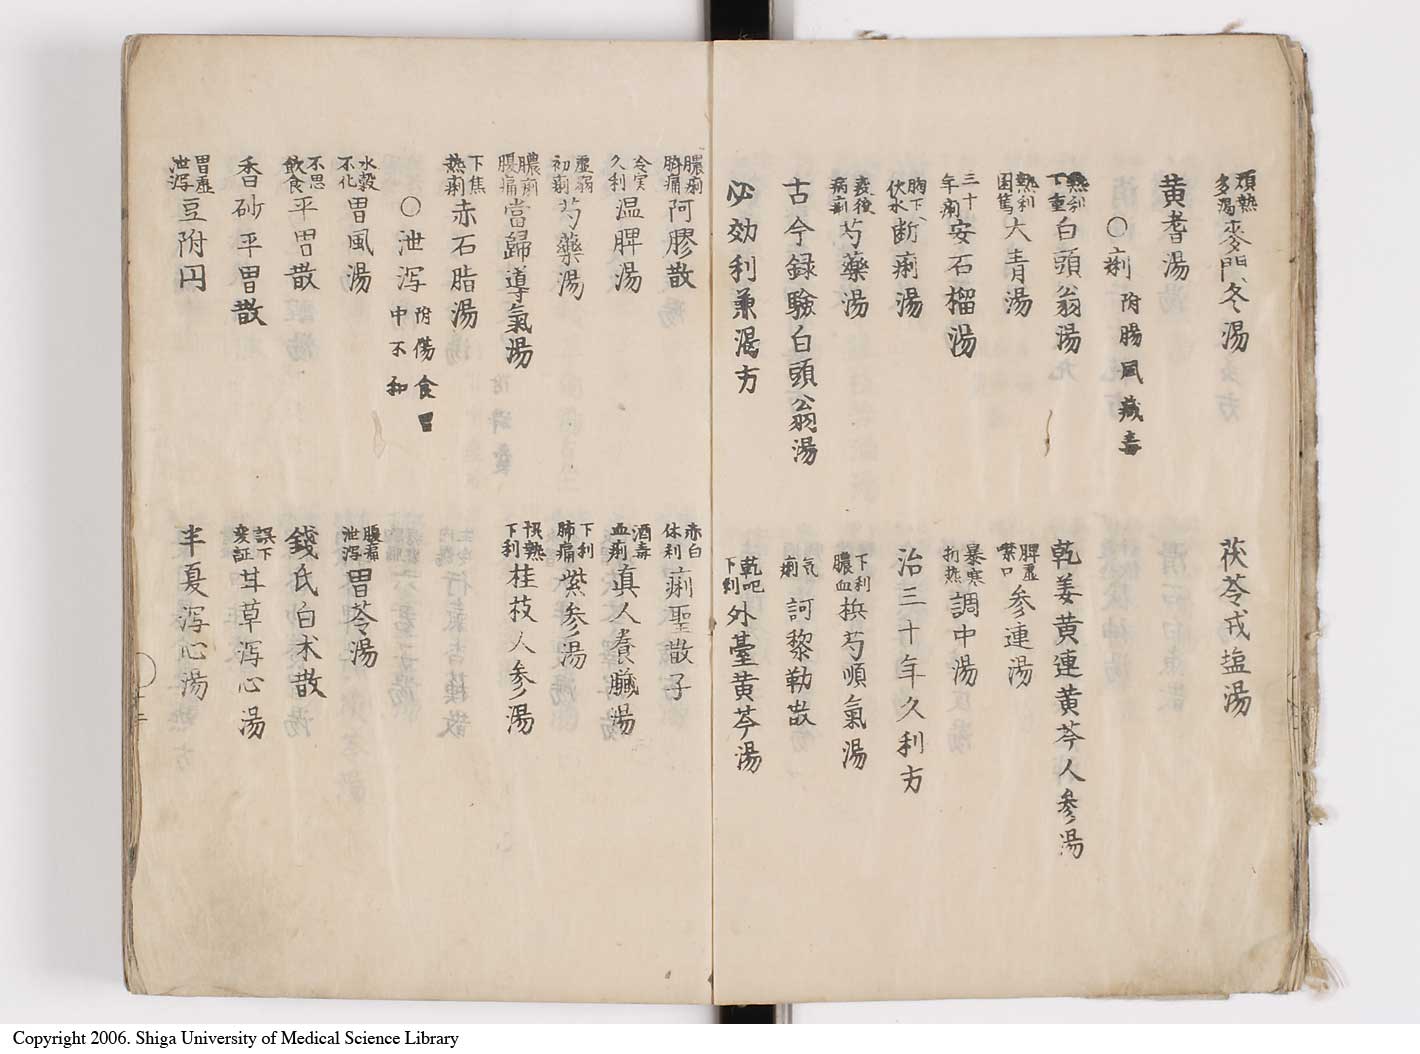 煩熱多渇 麥門冬湯
茯苓戎塩湯
黄耆湯
〇痢 附腸風藏毒
熱利下重 白頭翁湯
乾姜黄連黄芩人参湯
熱利困篤 大青湯
脾虚噤口 参連湯
三十年痢 安石榴湯
暴寒折熱 調中湯
胸下伏水 断痢湯
治三十年久利方
疫後病痢 芍藥湯
下利膿血 梹芍順氣湯
古今録驗白頭翁湯
気痢 訶黎勒散
必効利兼渇方
乾呕下利 外臺黄芩湯
膿痢臍痛 阿膠散
赤白休利 痢聖散子
冷実久利 温脾湯
酒毒血痢 真人養臓湯
虚弱初痢 芍藥湯
下利肺痛 紫参湯
膿痢腹痛 當歸導氣湯
恊熱下利 桂枝人参湯
下焦熱痢 赤石脂湯
〇泄泻 附傷食胃中不和
水穀不化 胃風湯
腹痛泄泻 胃苓湯
不思飲食 平胃散
錢氏白朮散
香砂平胃散
誤下変証 甘草泻心湯
胃虚泄泻 豆附円
半夏泻心湯
Copyright 2006. Shiga University of Medical Science Library